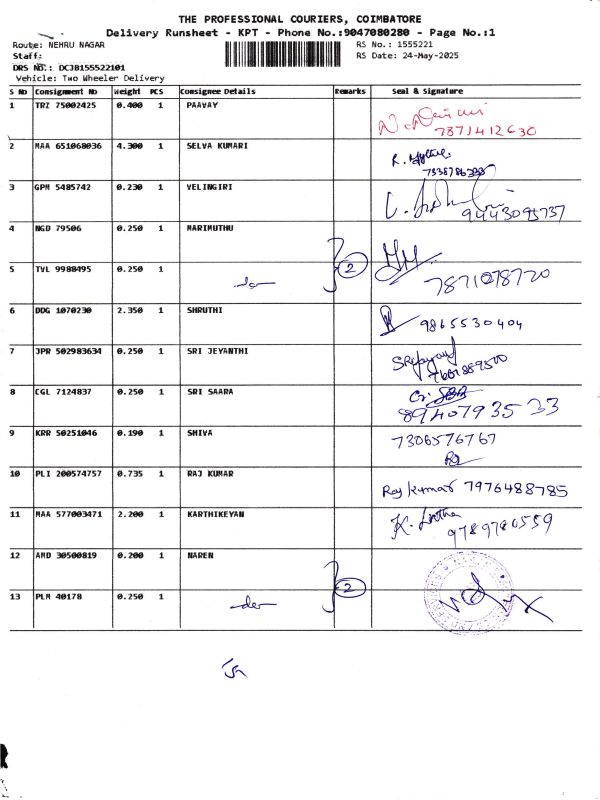 THE PROFESSIONAL COURIERS, COIMBATORE
Delivery Runsheet - KPT - Phone No.:9047080280 - Page No.:1
Route: NEHRU NAGAR RS No.: 1555221
Staff: RS Date: 24-May-2025
DRS NO.: DCJB155522101
Vehicle: Two Wheeler Delivery
S No Consignment No Weight PCS Consignee Details Remarks Seal & Signature
1 TRZ 75002425 0.400 1 PAAVAY
7871412630
2 MAA 651068036 4.300 1 SELVA KUMARI
3 GPM 5485742 0.230 1 VELINGIRI
9443095737
4 NGD 79506 0.250 1 MARIMUTHU
5 TVL 9988495 0.250 1 2
7871078770
6 DDG 1070230 2.350 1 SHRUTHI 9865530404
7 JPR 502983634 0.250 1 SRI JEYANTHI
8 CGL 7124837 0.250 1 SRI SAARA
8940793533
9 KRR 50251046 0.190 1 SHIVA 7306576767
10 PLI 200574757 0.735 1 RAJ KUMAR Raj kumar 7976488785
11 MAA 577003471 2.200 1 KARTHIKEYAN K. Latha
9789780559
12 AMD 30500819 0.200 1 NAREN
2
13 PLM 40178 0.250 1